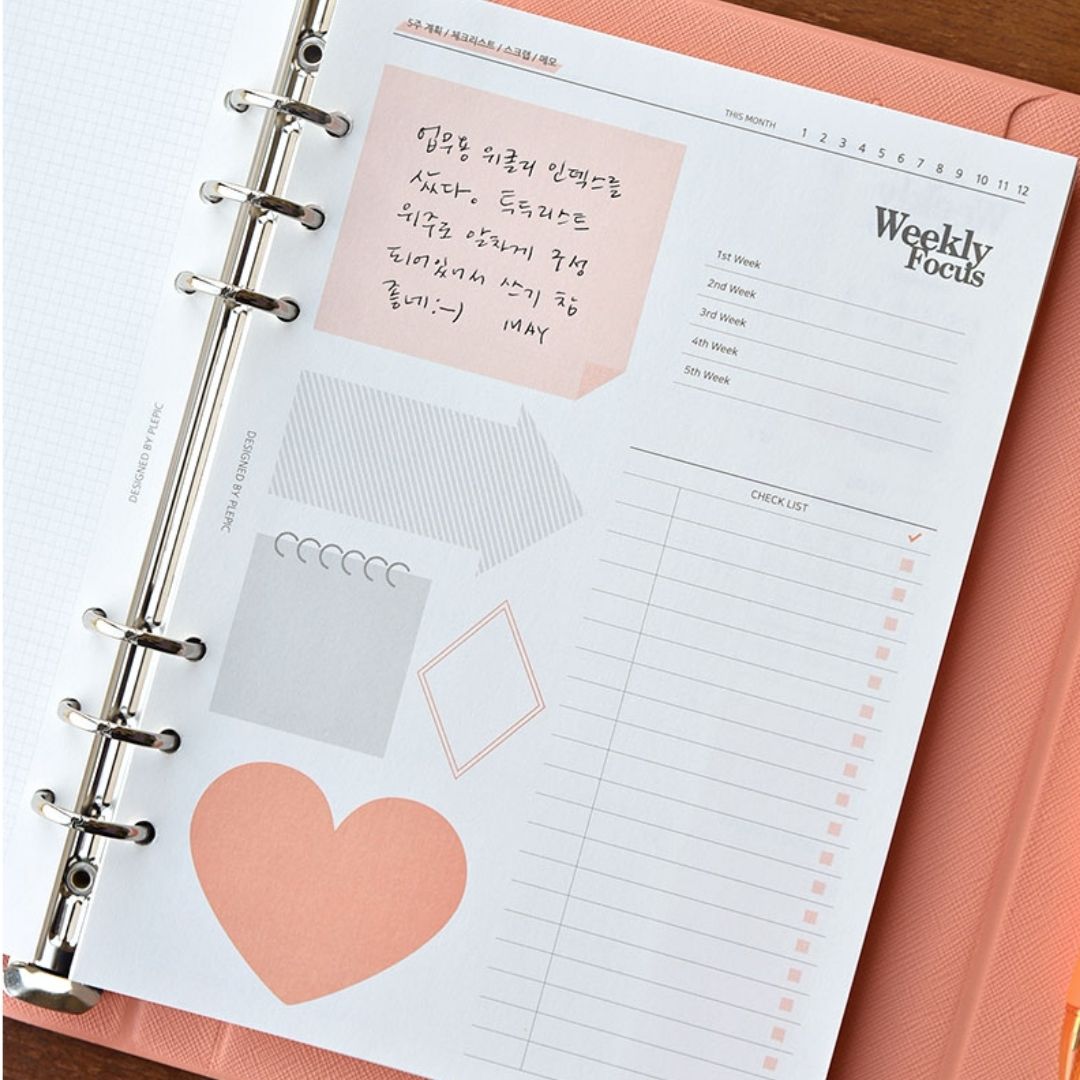 5주 계획 / 체크리스트 / 스크랩 / 메모
THIS MONTH 1 2 3 4 5 6 7 8 9 10 11 12
업무용 위클리 인덱스를
샀다。 투두리스트
위주로 알차게 구성
되어있어서 쓰기 참
좋네:-) MAY
Weekly
Focus
1st Week
2nd Week
3rd Week
4th Week
5th Week
CHECK LIST
DESIGNED BY PLEPIC
DESIGNED BY PLEPIC